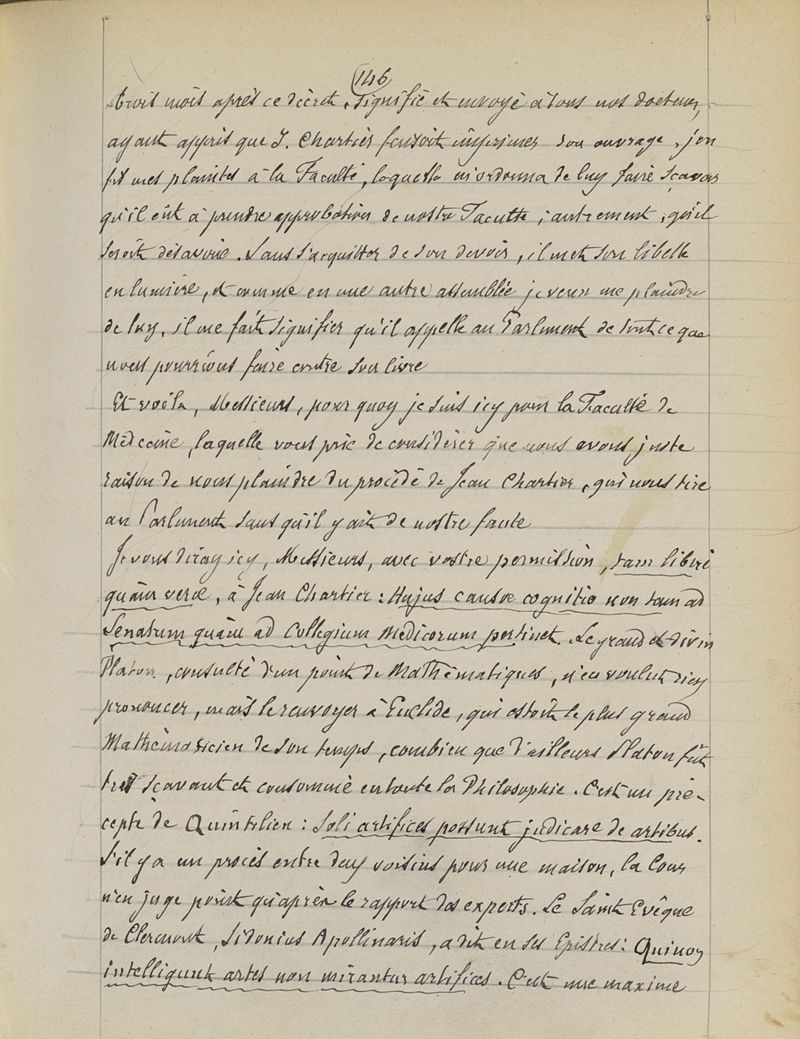 146
trois mois après ce décret, signifié et envoyé à tous nos docteurs,
ayant appris que J. Chartier faisoit imprimer son ouvrage, j'en
fis mes plaintes à la Faculté, laquelle m'ordonna de luy faire sçavoir
qu'il eût à prendre approbation de nostre Faculté ; autrement, qu'il
seroit désavoué. Sans s'acquitter de son devoir, il met son libelle
en lumière, et comme en une autre assemblée je veux me plaindre
de luy, il me fait signifier qu'il appelle au Parlement de tout ce que
nous pourrions faire contre son livre
Et voilà, Messieurs, pourquoy je suis icy pour la Faculté de
Médecine, laquelle vous prie de considérer que nous avons juste
raison de nous plaindre du procédé de Jean Chartier, qui nous tire
au Parlement sans qu'il y ait de nostre faute
Je vous diray icy, Messieurs, avec vostre permission, tam liberè
quàm verè, à Jean Chartier : Hujus causæ cognitio non tam ad
Senatum quàm ad Collegium Medicorum pertinet. Le grand et divin
Platon, consulté d'un point de Mathématiques, n'en voulut rien
prononcer, mais le renvoyer à Euclide, qui estoit le plus grand
Mathématicien de son temps, combien que d'ailleurs Platon fût
très scavant et consommé en toute la Philosophie. C'est un pré-
cepte de Quintilien : Soli artifices possunt judicare de artibus.
S'il y a un procès entre deux voisins pour une maison, la Cour
n'en juge point qu'après le rapport des experts. Le Saint Evêque
de Clermont, Sidonius Apollinaris, a dit en ses Epistres : Qui non
intelligunt artes non mirantur artifices. C'est une maxime